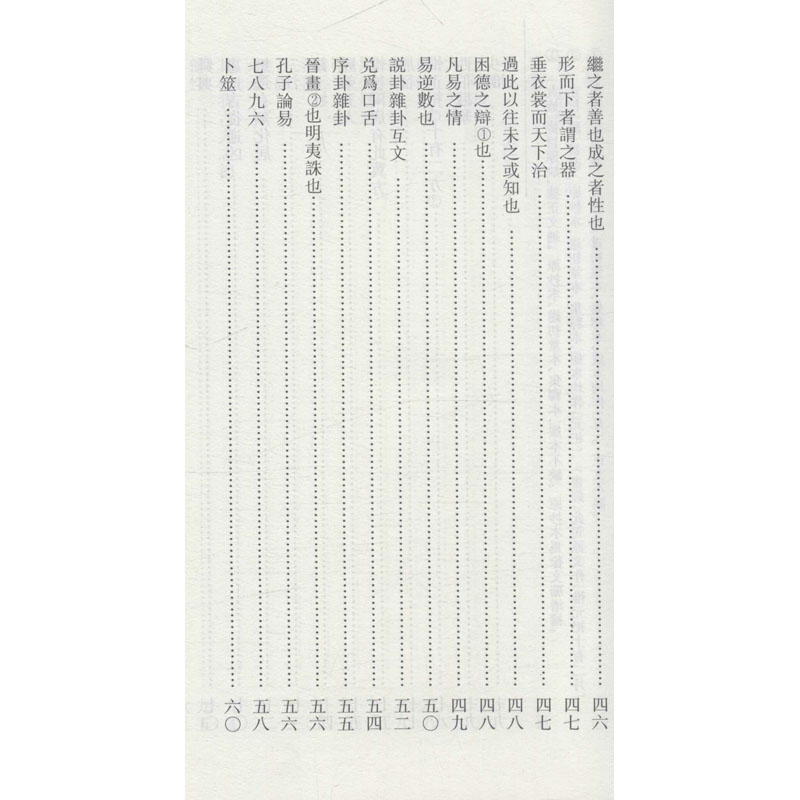 繼之者善也成之者性也……四六
形而下者謂之器……四七
垂衣裳而天下治……四七
過此以往未之或知也……四八
困德之辯①也……四八
凡易之情……四九
易逆數也……五〇
説卦雜卦互文……五二
兑爲口舌……五四
序卦雜卦……五五
晉晝②也明夷誅也……五六
孔子論易……五六
七八九六……五八
卜筮……六〇